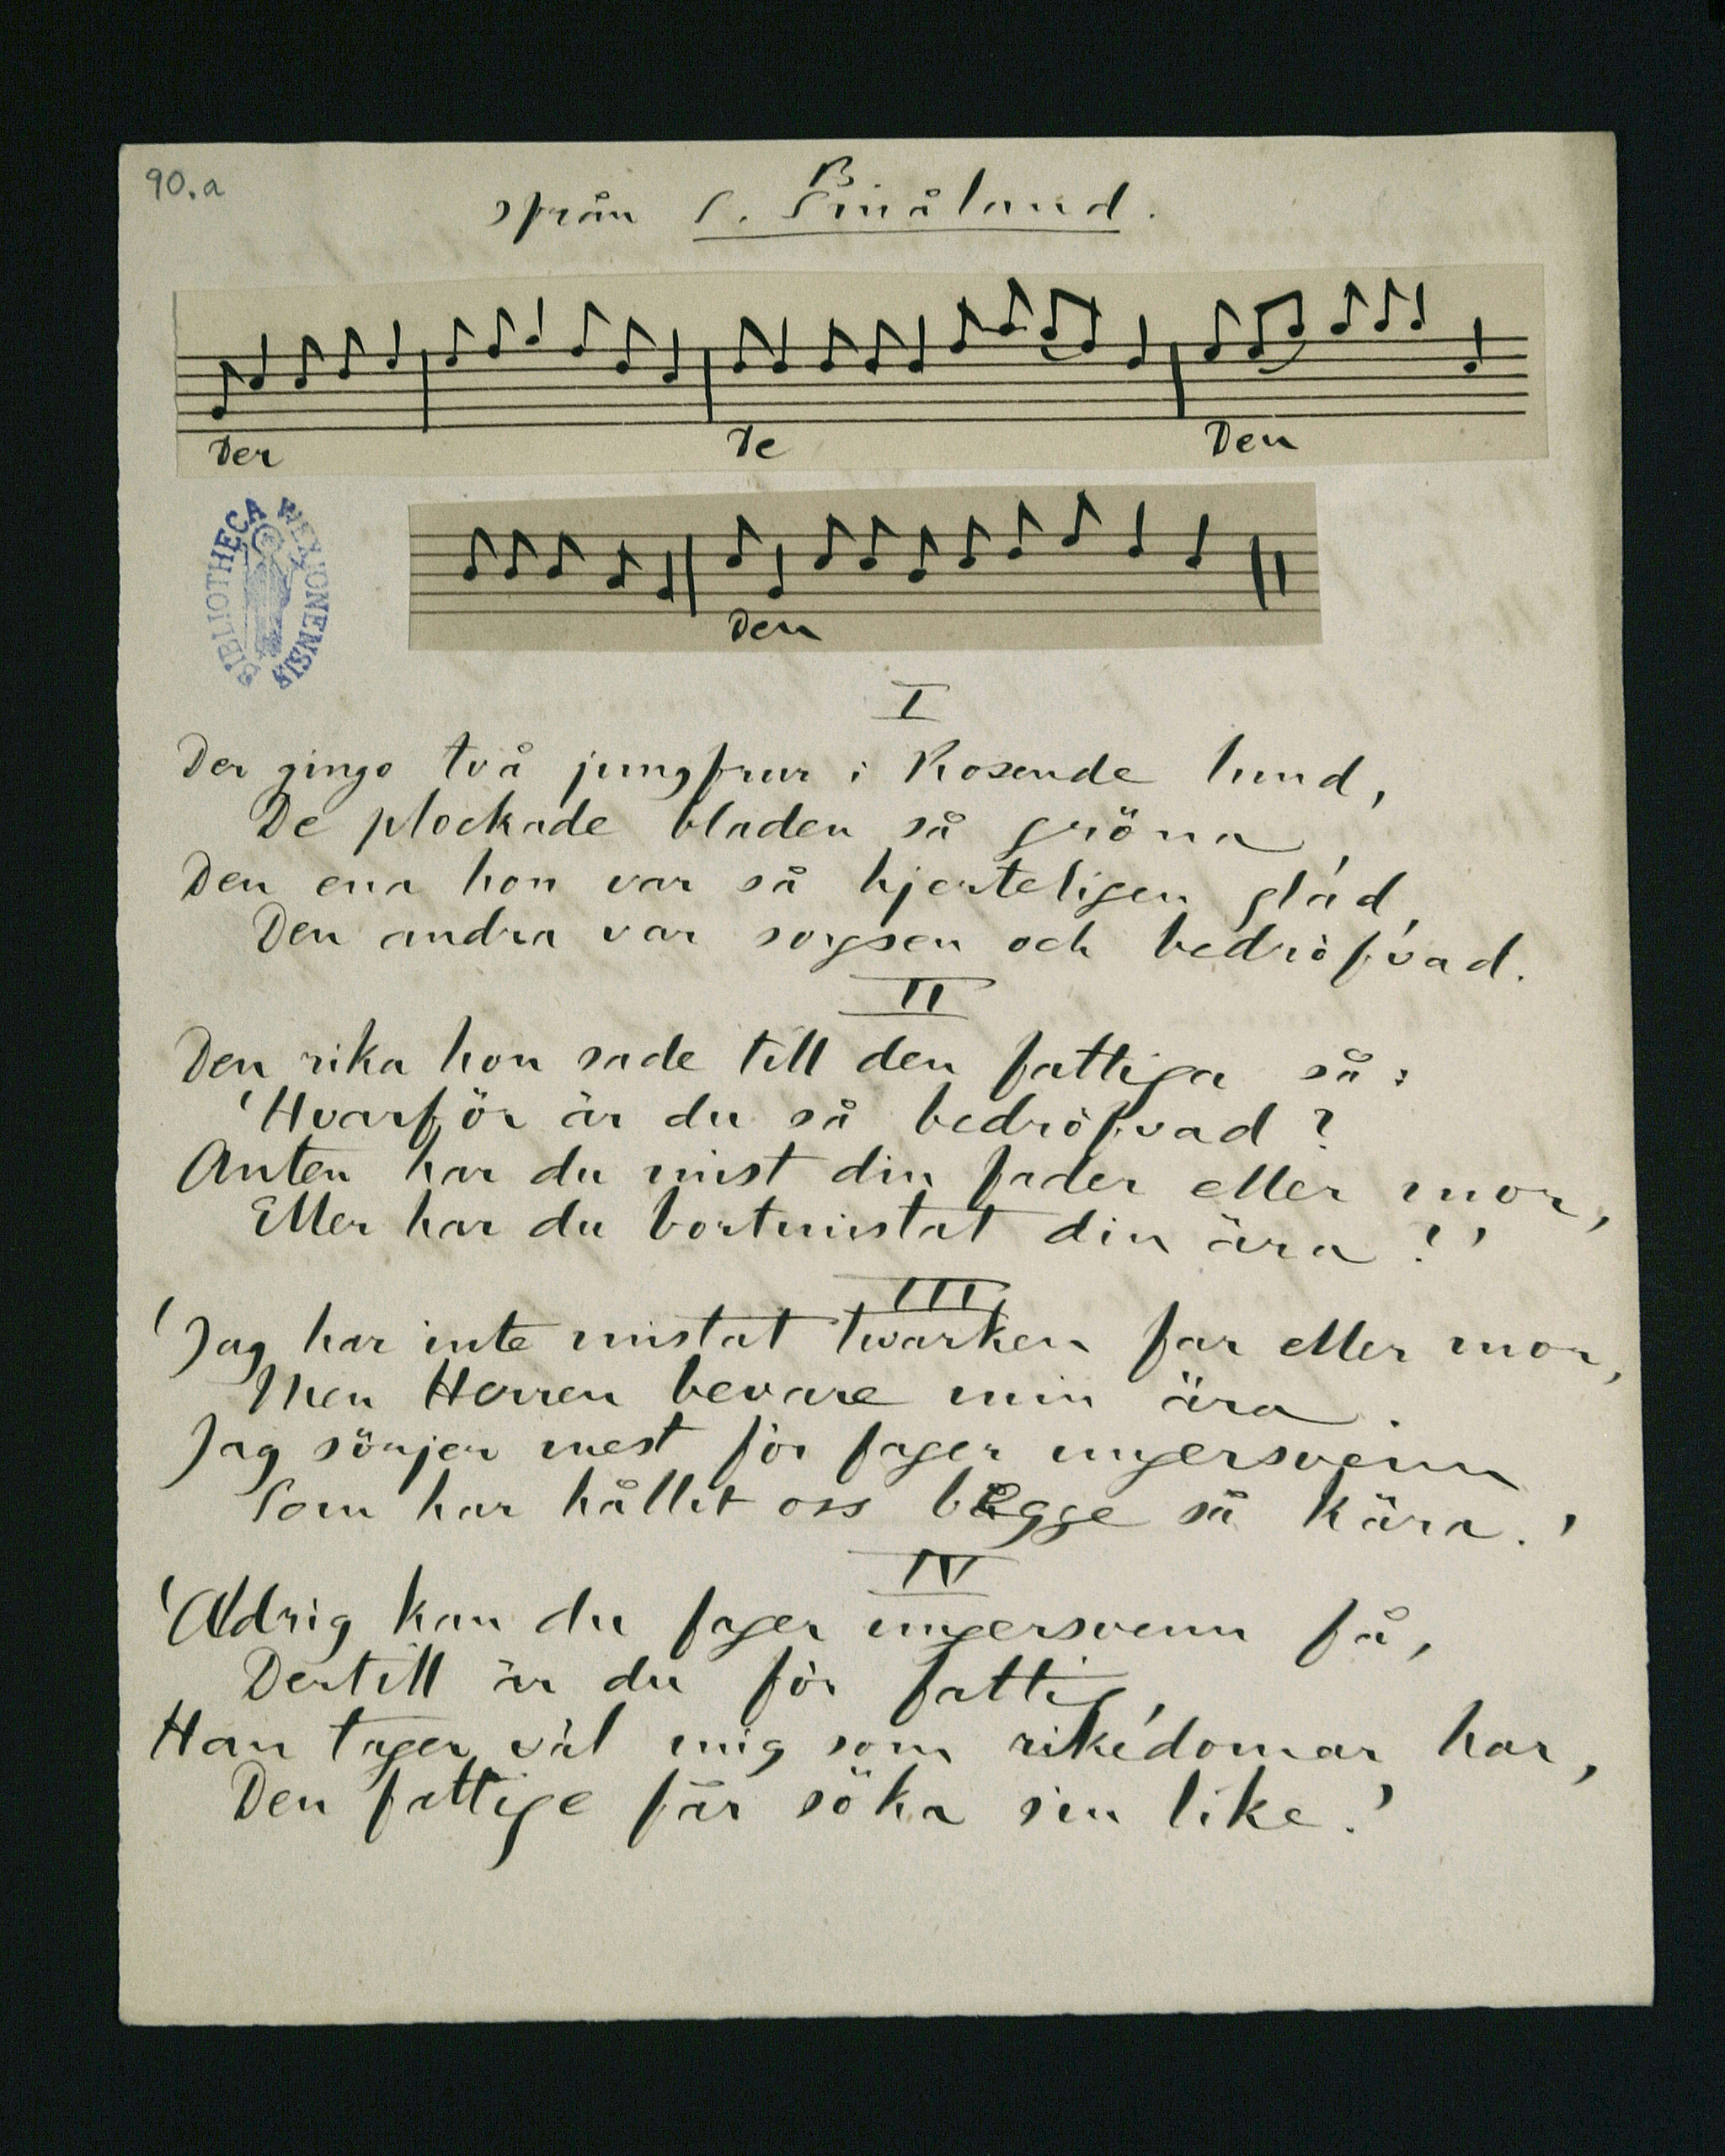 90.a
B
från S. Småland.
Der De Den
BIBLIOTHECA WEXIONENSIS
Den
I
Der gingo två jungfrur i Rosende lund,
De plockade bladen så gröna
Den ena hon var så hjerteligen glad,
Den andra var sorgsen och bedröfvad.
II
Den rika hon sade till den fattiga så:
'Hvarför är du så bedröfvad?
Anten har du mist din fader eller mor,
Eller har du bortmistat din ära?'
III
'Jag har inte mistat twarken far eller mor,
Men Herren bevare min ära.
Jag sörjer mest för fager ungersvenn
Som har hållit oss begge så kära.'
IV
'Aldrig kan du fager ungersvenn få,
Dertill är du för fattig,
Han tager väl mig som rikedomar har,
Den fattige får söka sin like.'